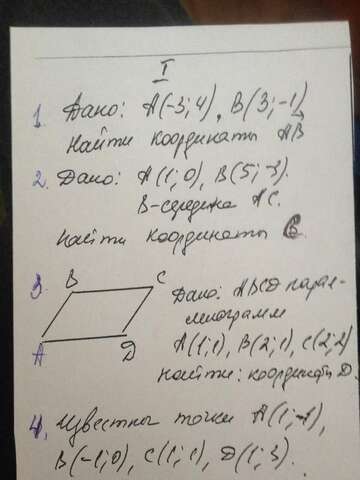 I
1. Дано: A(-3; 4), B(3; -1)
Найти координаты AB
2. Дано: A(1; 0), B(5; -3).
B-середина AC.
Найти координаты C.
3 B C Дано: ABCD парал-
лелограмм
A(1;1), B(2;1), C(2;2)
A D Найти: координаты D.
4. Известны точки A(1;-1),
B(-1;0), C(1;1), D(1;3).